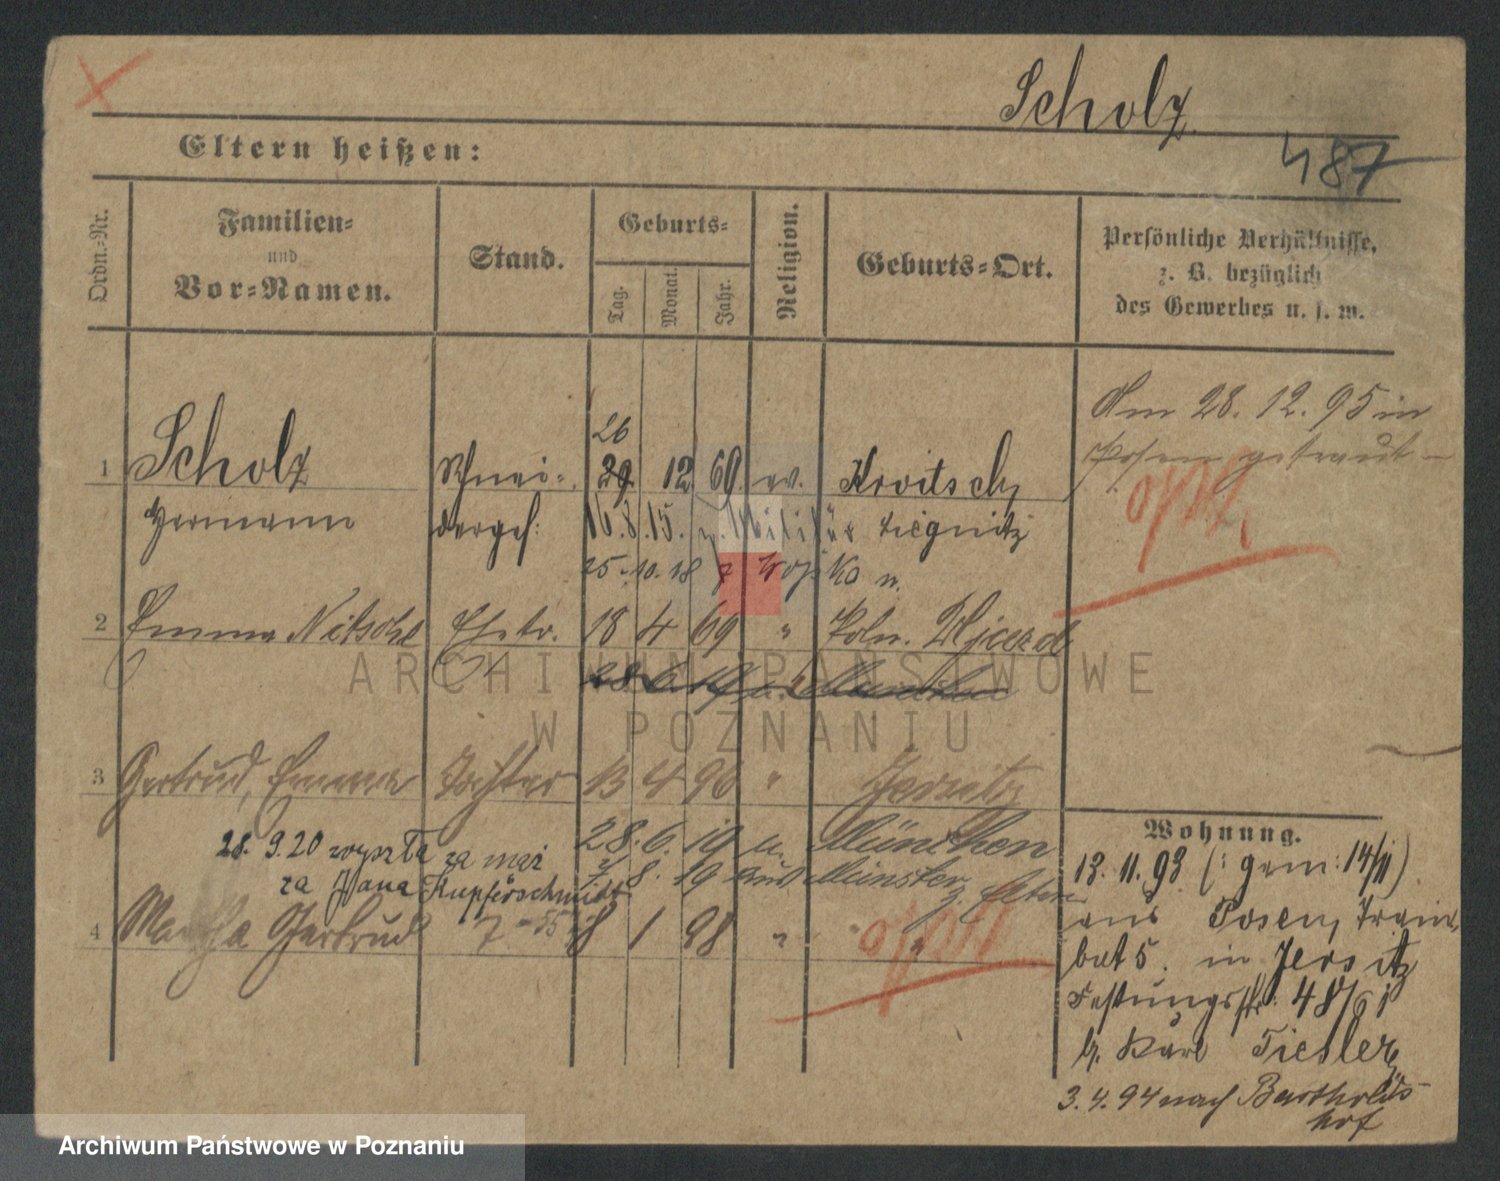 Scholz
487
Eltern heißen:
Ordn.-Nr.
Familien- und Vor-Namen.
Stand.
Geburts-
Tag.
Monat.
Jahr.
Religion.
Geburts-Ort.
Persönliche Verhältnisse, z. B. bezüglich des Gewerbes u. s. w.
Am 28. 12. 95 in
Posen getraut
26
1 Scholz Schnei- 29 12 69 ev. Kroitsch,
Hermann derges: 16.8.15. z. Militär Liegnitz
25.10.18
2 Emma Nitsche Ehefr. 18 4 69 " Poln.
28 6 19
3 Gertrud, Emma Tochter 13 4 96 " Jersitz
28. 6. 19 n. München
28. 9. 20 wyszła za mąż
7. 8. 19 aus Münster z. Eltern
za Jana Kupferschmidt
4 Martha Gertrud 8 1 98 " "
Wohnung.
13. 11. 93 (: gem: 14/11)
aus Posen, Train
bat 5. in Jersitz
Festungsstr. 48/61
b. Karl Fiedler
3. 4. 94 nach Bartholds-
hof
ARCHIWUM PAŃSTWOWE
W POZNANIU
Archiwum Państwowe w Poznaniu